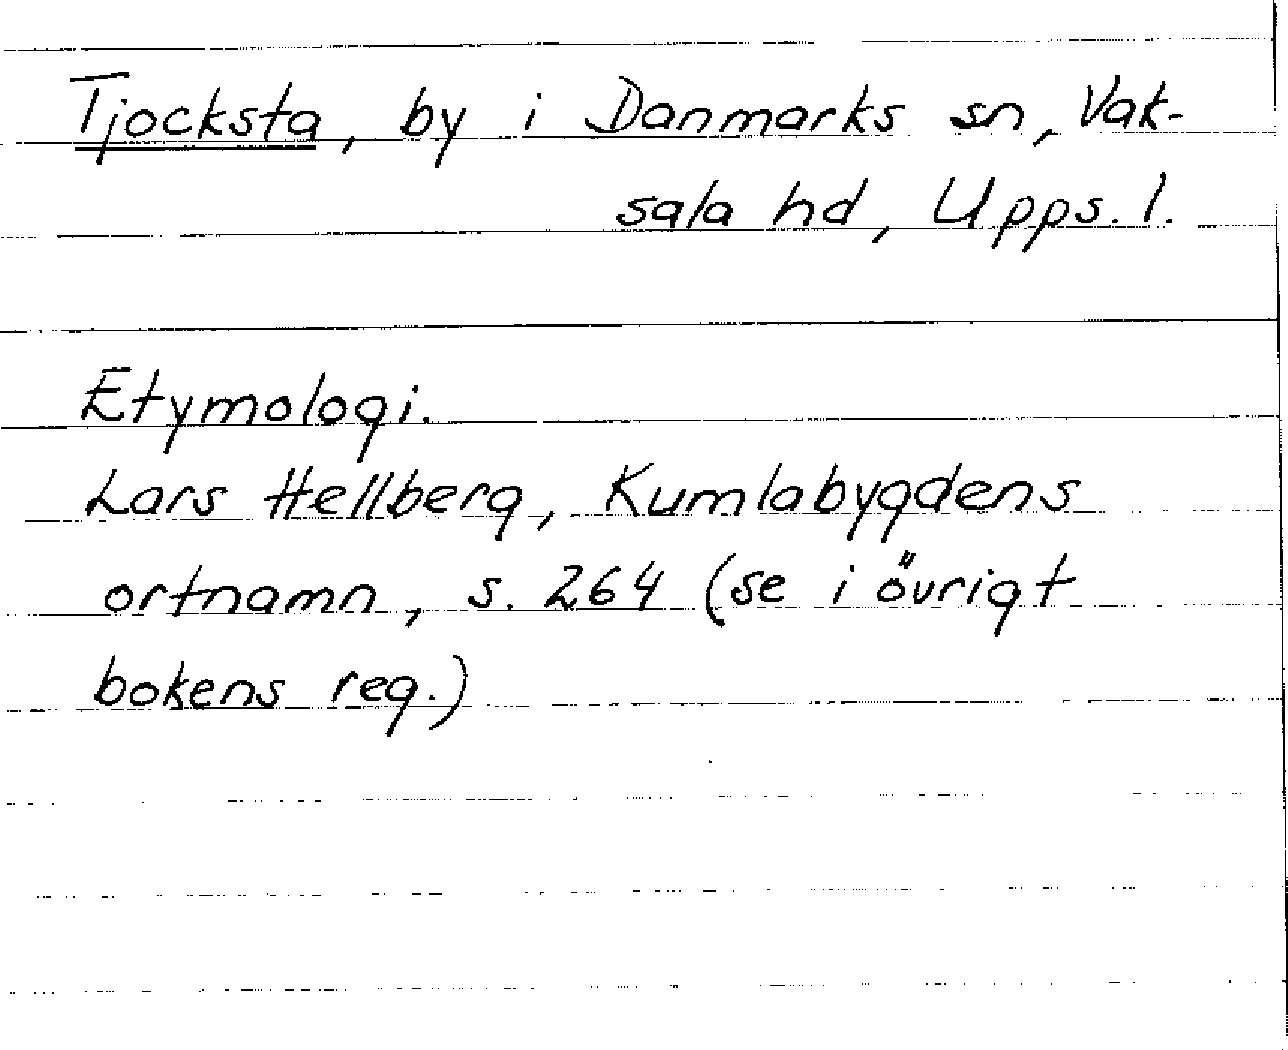 Tjocksta, by i Danmarks sn, Vak-
sala hd, Upps. l.
Etymologi.
Lars Hellberg, Kumlabygdens
ortnamn, s. 264 (se i övrigt
bokens reg.)